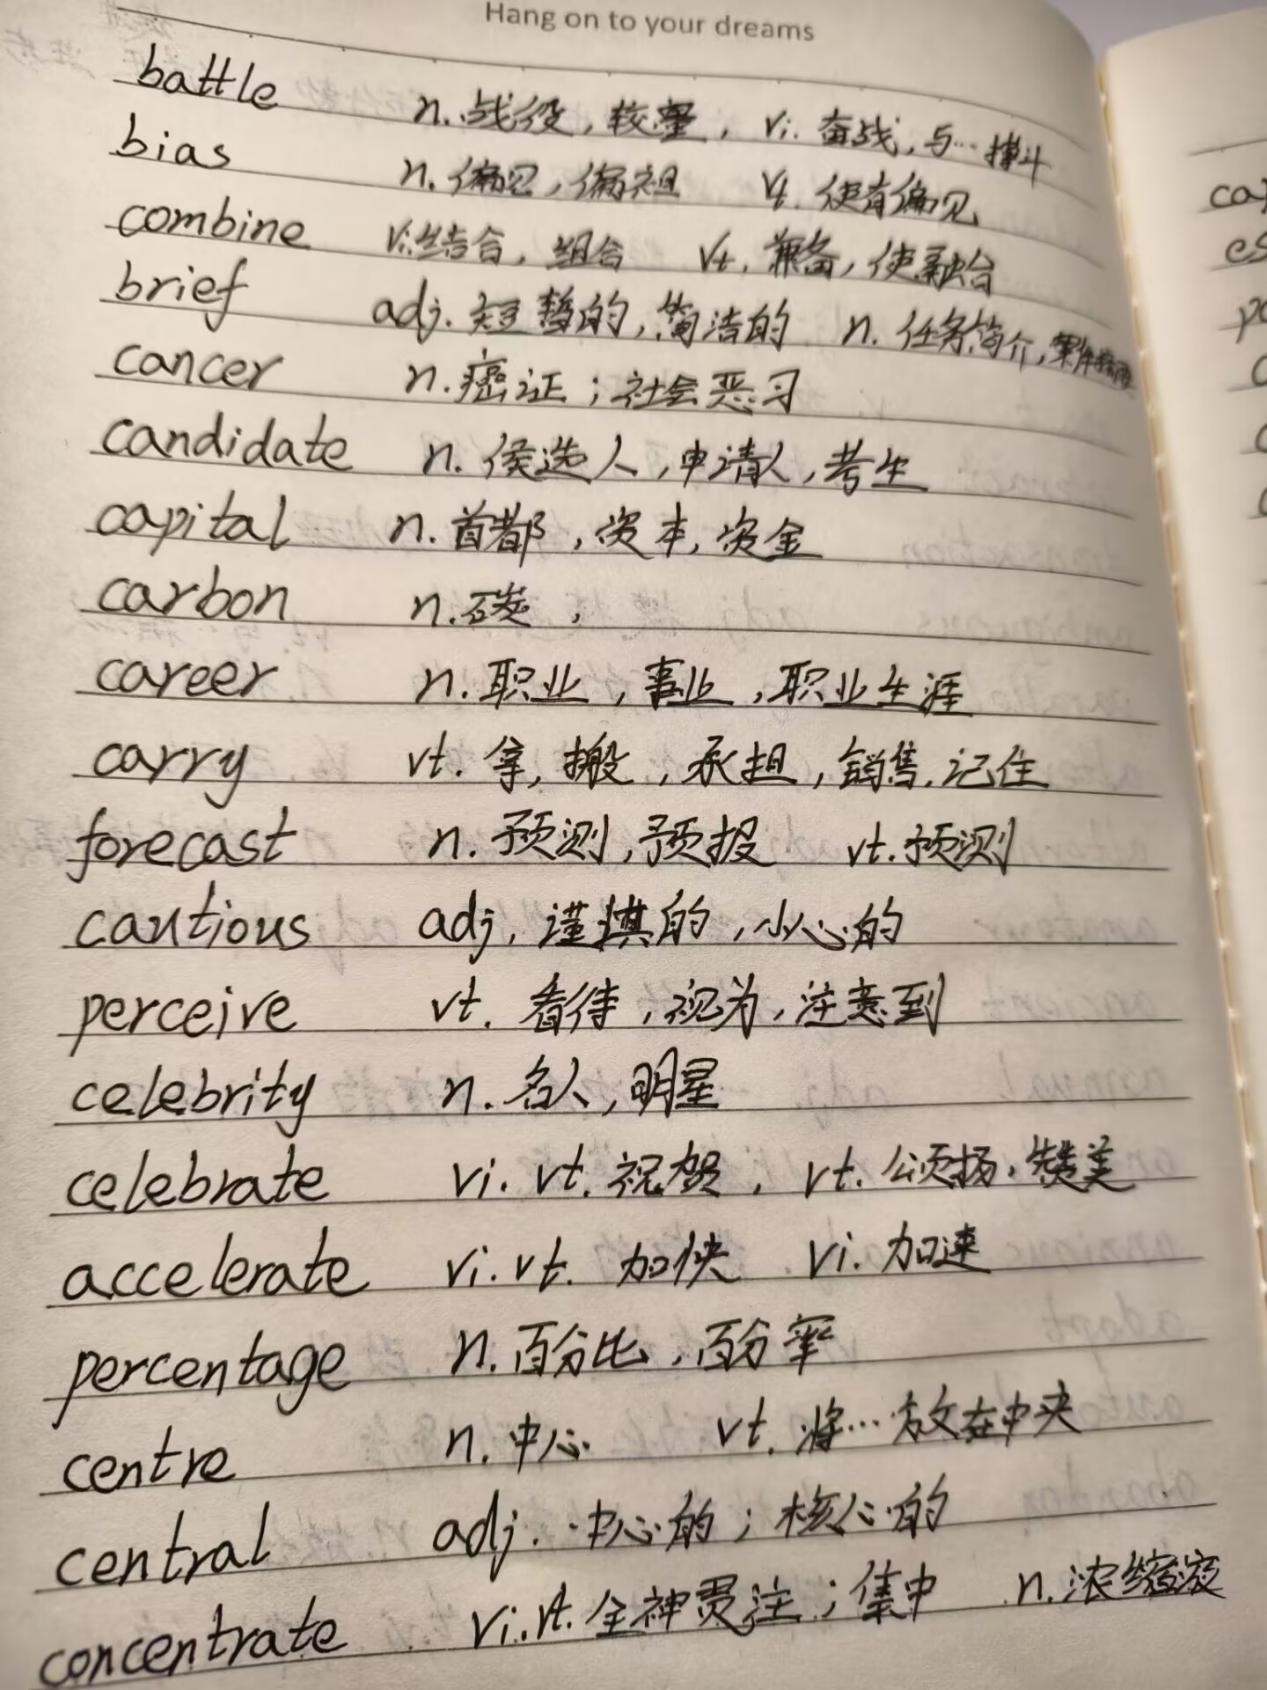 Hang on to your dreams
battle n. 战役, 较量, vi. 奋战, 与…搏斗
bias n. 偏见, 偏袒 vt. 使有偏见
combine vi. 结合, 组合 vt. 兼备, 使融合
brief adj. 短暂的, 简洁的 n. 任务简介,
cancer n. 癌证; 社会恶习
candidate n. 候选人, 申请人, 考生
capital n. 首都, 资本, 资金
carbon n. 碳,
career n. 职业, 事业, 职业生涯
carry vt. 拿, 搬, 承担, 销售, 记住
forecast n. 预测, 预报 vt. 预测
cautious adj. 谨慎的, 小心的
perceive vt. 看待, 视为, 注意到
celebrity n. 名人, 明星
celebrate vi. vt. 祝贺, vt. 颂扬, 赞美
accelerate vi. vt. 加快 vi. 加速
percentage n. 百分比, 百分率
centre n. 中心 vt. 将…放在中央
central adj. 中心的; 核心的
concentrate vi. vt. 全神贯注; 集中 n. 浓缩液